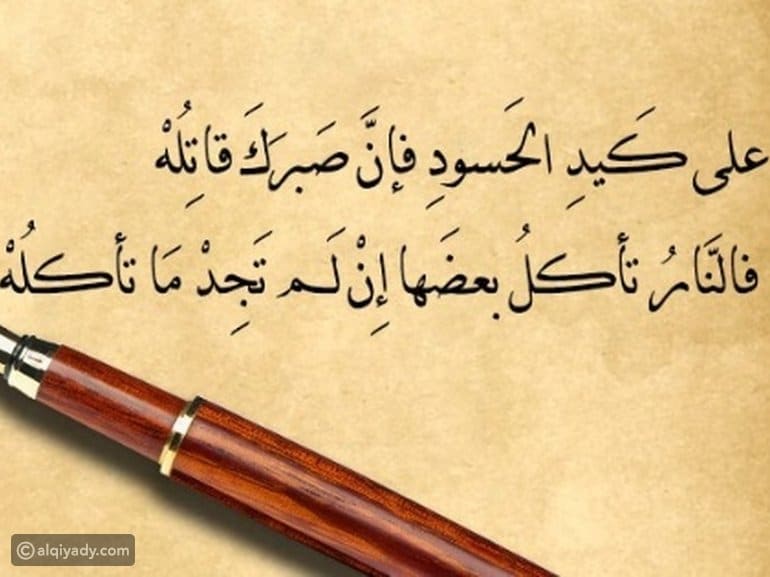 على كَيدِ الحَسودِ فإنَّ صَبرَكَ قاتِلُهْ
فالنَّارُ تأكلُ بعضَها إِنْ لَم تَجِدْ مَا تأكلُهْ
© alqiyady.com